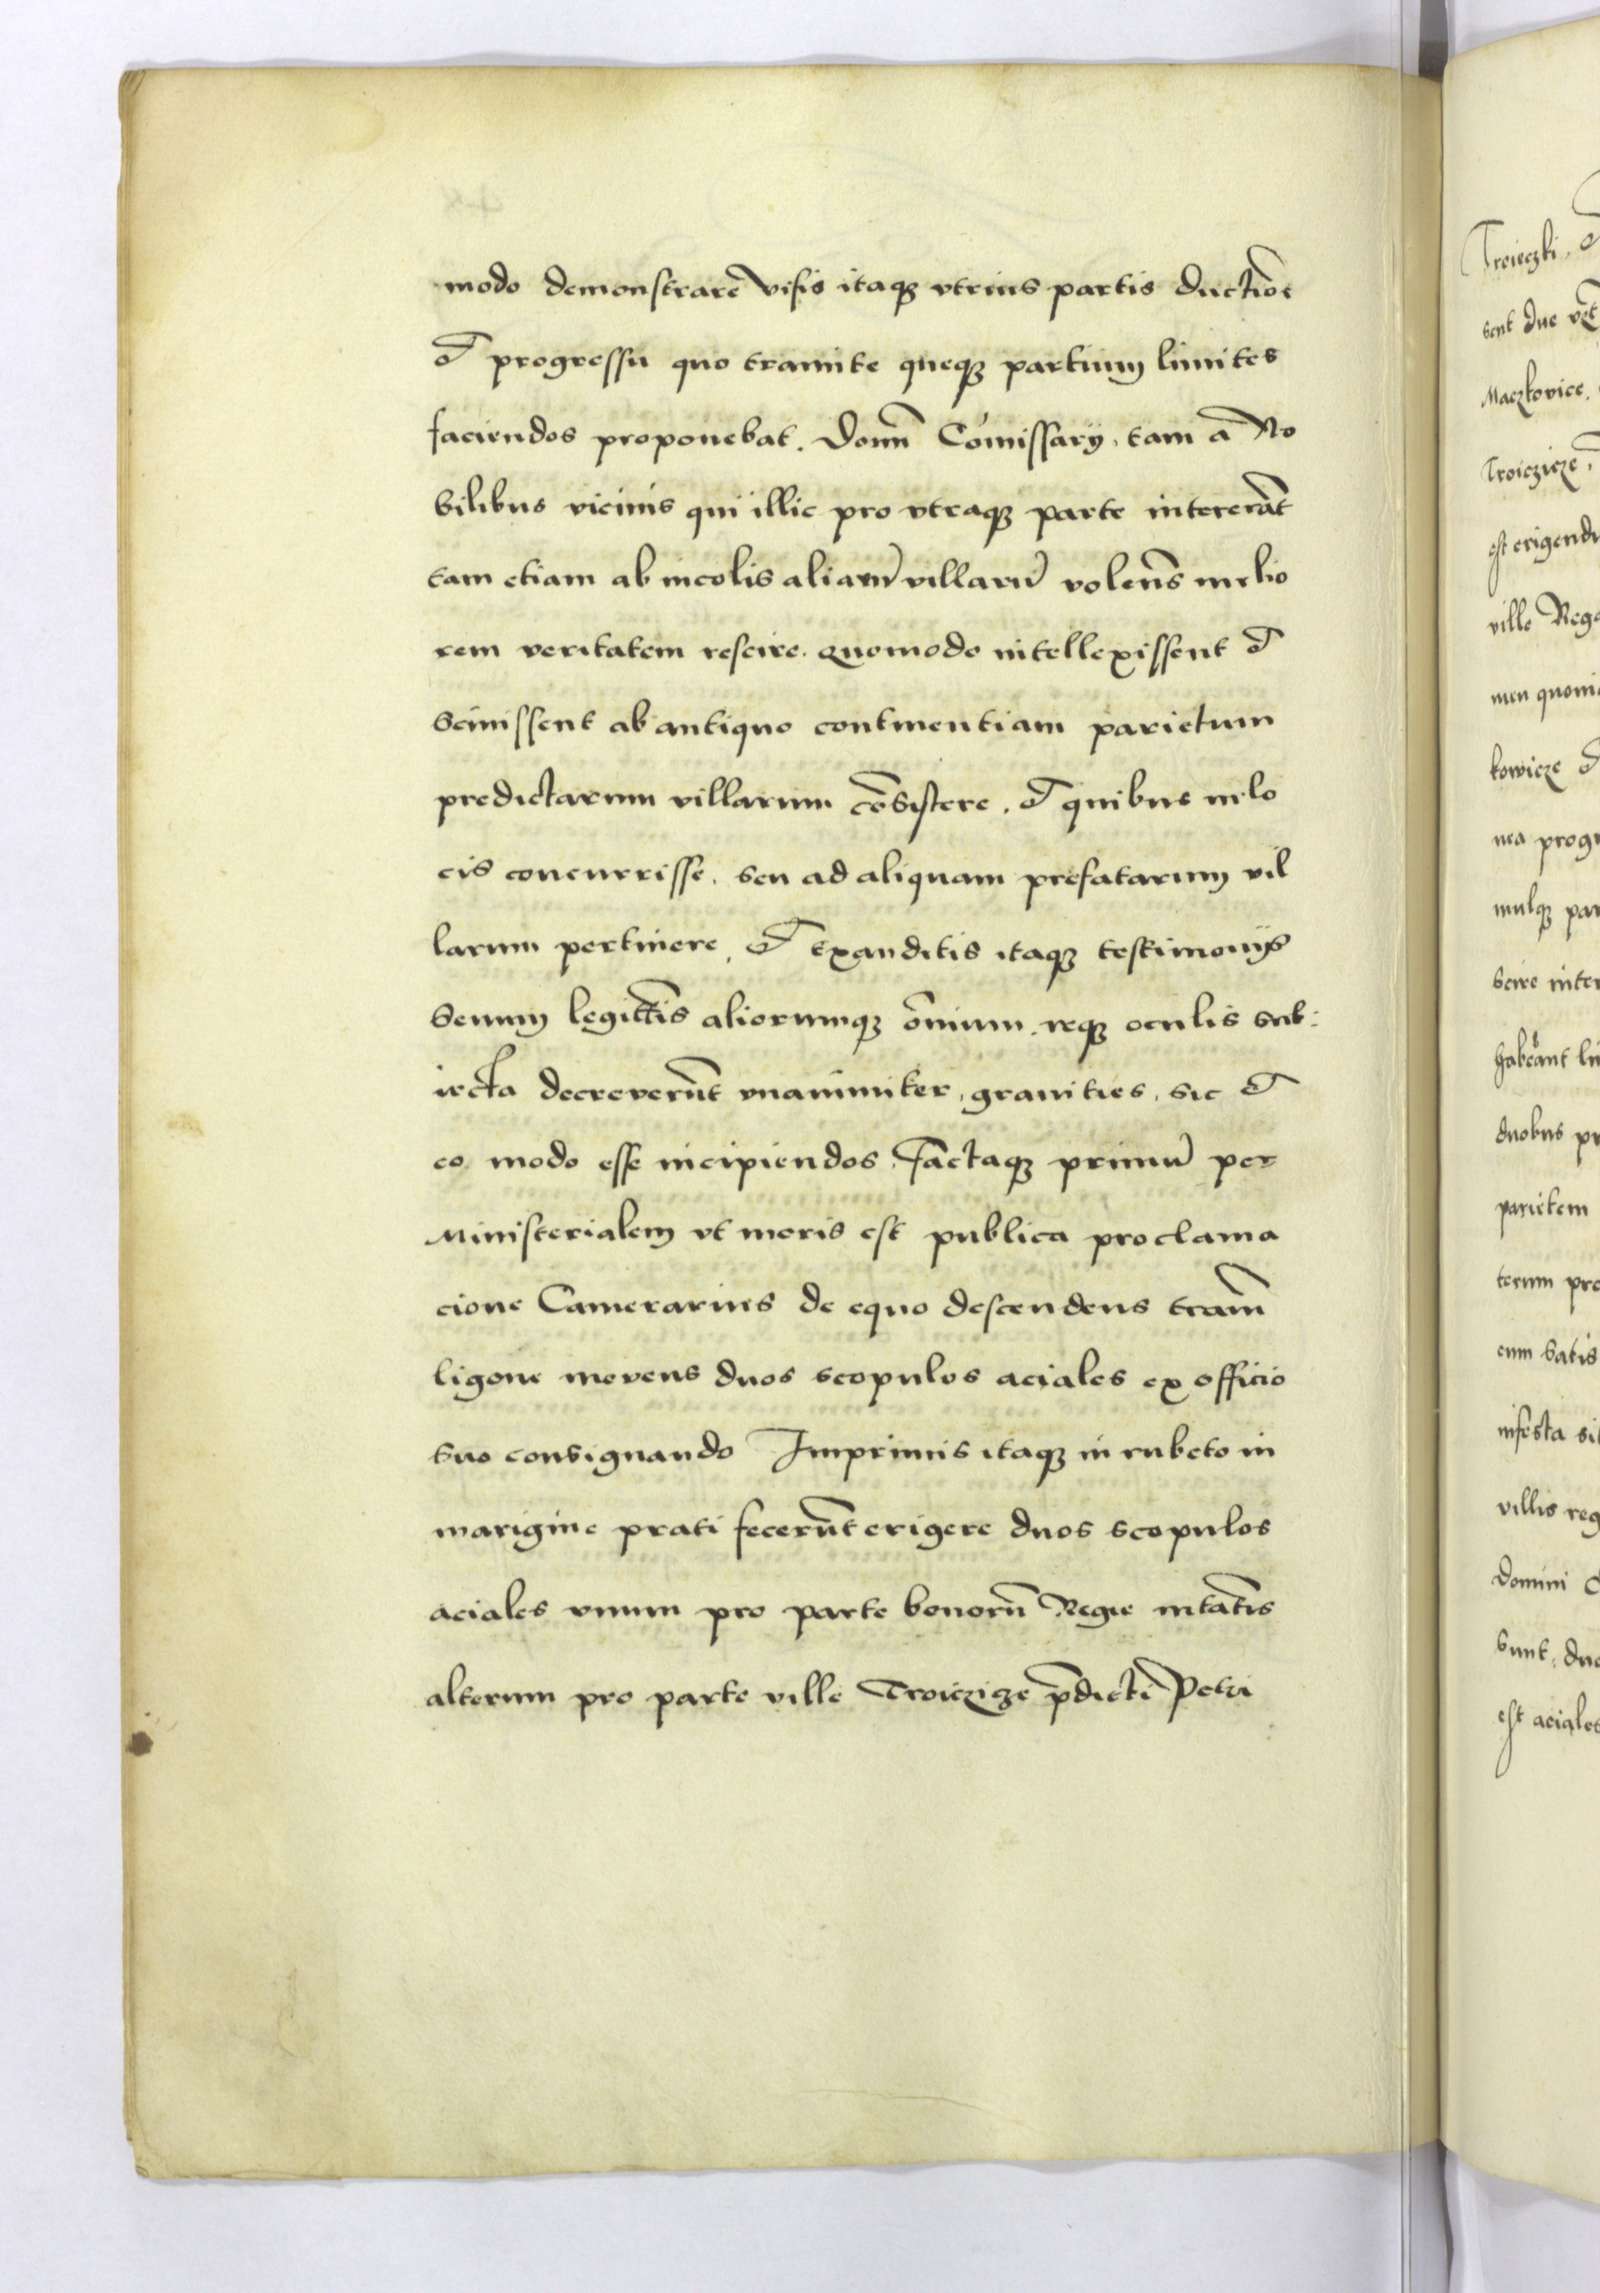 modo demonstrarē visis itaqꝫ vtrius partis ductiōe
et progressu quo tramite queqꝫ partium limites
faciendos proponebat. Domī Cōmissarÿ, tam a No
bilibus vicinis qui illic pro vtraqꝫ parte intererāt
tam etiam ab incolis aliarū villarū volens̄ melio
rem veritatem rescire. quomodo intellexissent et
scivissent ab antiquo continentiam parietum
predictarum villarum cōsistere. et quibus in lo
cis concurrisse. seu ad aliquam prefatarum vil
larum pertinere, et exauditis itaqꝫ testimonijs
senum legittīs aliorumqꝫ ōmium. reqꝫ oculis sub:
iecta decreverūt vnanimiter, granities, sic et
eo modo esse incipiendos. Factaqꝫ primū per
Ministerialem vt moris est publica proclama
cione Camerarius de equo descendens trām
ligone movens duos scopulos aciales ex officio
suo consignando Imprimis itaqꝫ in rubeto in
marigine prati fecerūt erigere duos scopulos
aciales vnum pro parte bonorū Regie mtātis
alterum pro parte ville Troiczicze p̄dicti Petri
Troieczki,
sent due
Maczkovice.
Troiczicze,
est erigendu
ville Rega
men quoni
kowicze et
nea progr
mulqꝫ par
scire inter
habeāant li
duobus pr
parietem
terum pro
cum satis
infesta si
villis reg
domini
sunt, duo
est aciales